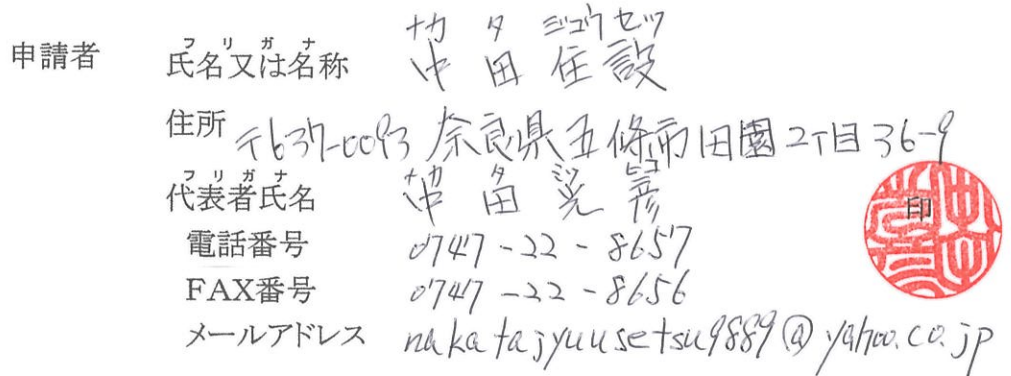 ナカ タ ジュウセツ
申請者 氏名又は名称 中田住設
フリガナ
住所 〒637-0093 奈良県五條市田園2丁目36-9
ナカ タ ミツ ヒコ
フリガナ
代表者氏名 中田光彦 印
電話番号 0747-22-8657
FAX番号 0747-22-8656
メールアドレス nakatajyuusetsu9889@yahoo.co.jp